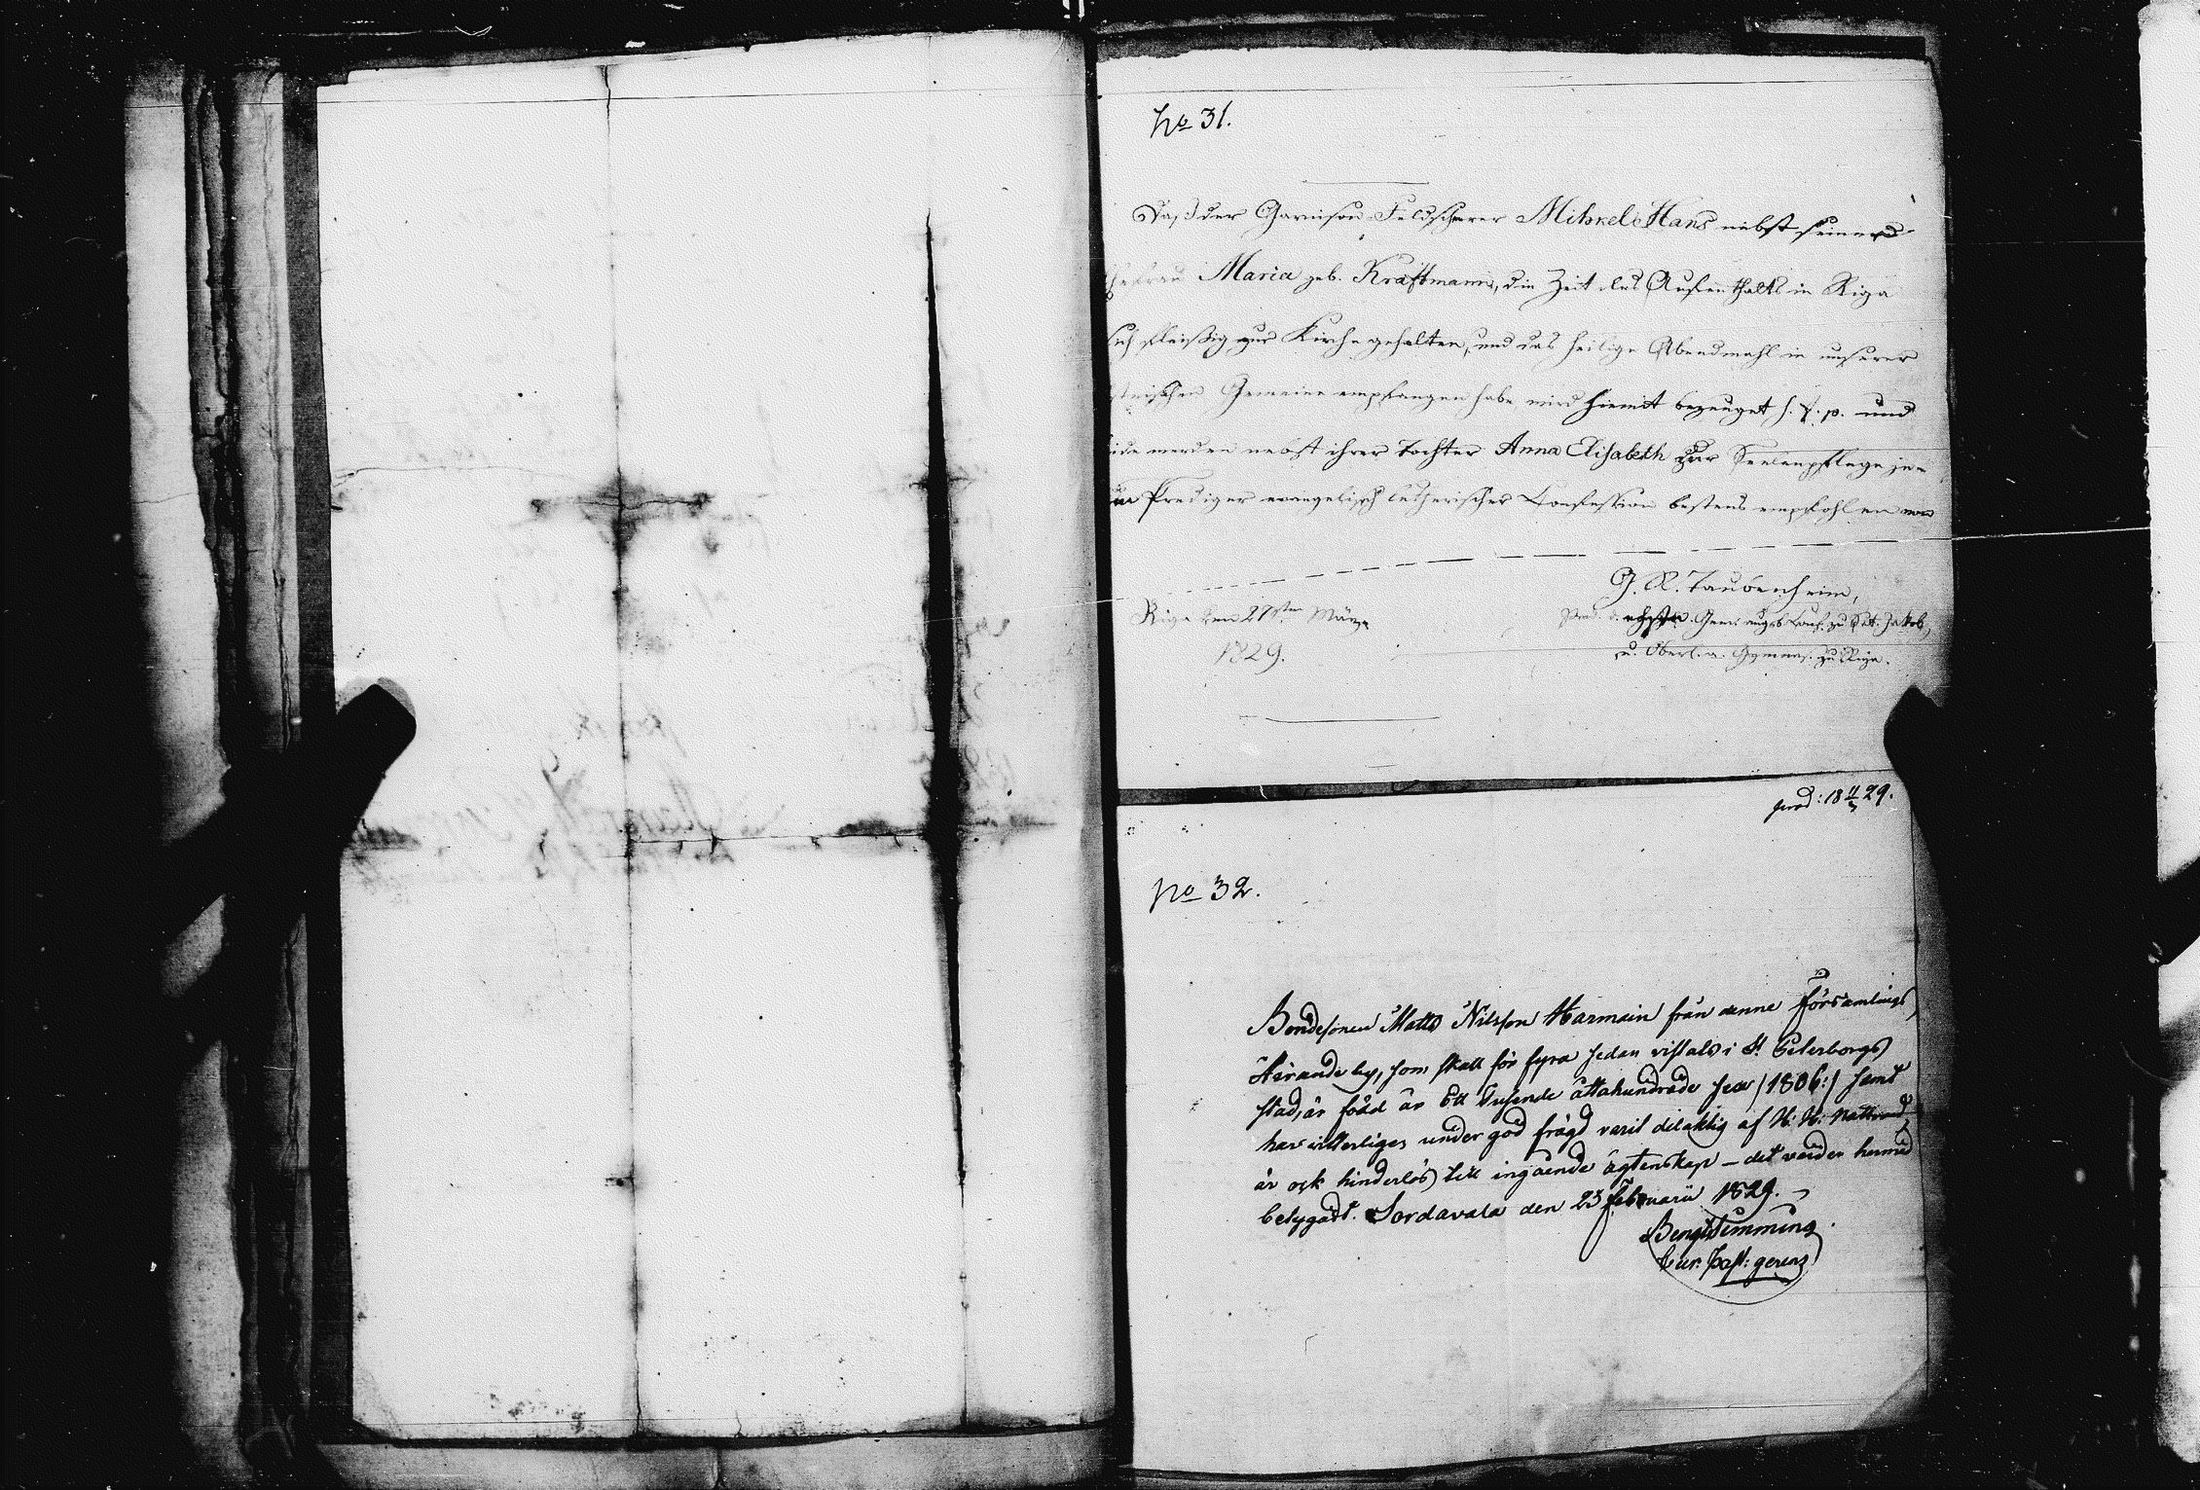 No 31.
Daß der Garnison Feldscherer Mihkel Hans nebst seiner
Ehefrau Maria geb. Kraftmann, die Zeit des Aufenthalts in Riga
sich fleißig zur Kirche gehalten, und das heilige Abendmahl in unserer
Gemeine empfangen habe wird hiemit bezeuget und
werden nebst ihrer Tochter Anna Elisabeth zur Seelenpflege
Prediger evangelisch lutherischer Confession bestens empfohlen
G. R. Taubenheim,
Riga den 27sten März
zu St. Jakob,
1829.
u. Oberl. a. Gymnas. zu Riga.
prod: 18 11/3 29.
No 32.
Bondesonen Matts Nilsson Harmain från denne Församlings
by, som skall för fyra sedan vistats i St Petersborgs
stad, är född år Ett tusende åttahundrade sex /:1806:/ samt
har under god frägd varit delaktig af H: H: Nattvard
är ock hinderlös till ingående ägtenskap – det varder hermed
betygadt. Sordavala den 23 Februarii 1829.
Bengt Timming
Cur. Past: gerens